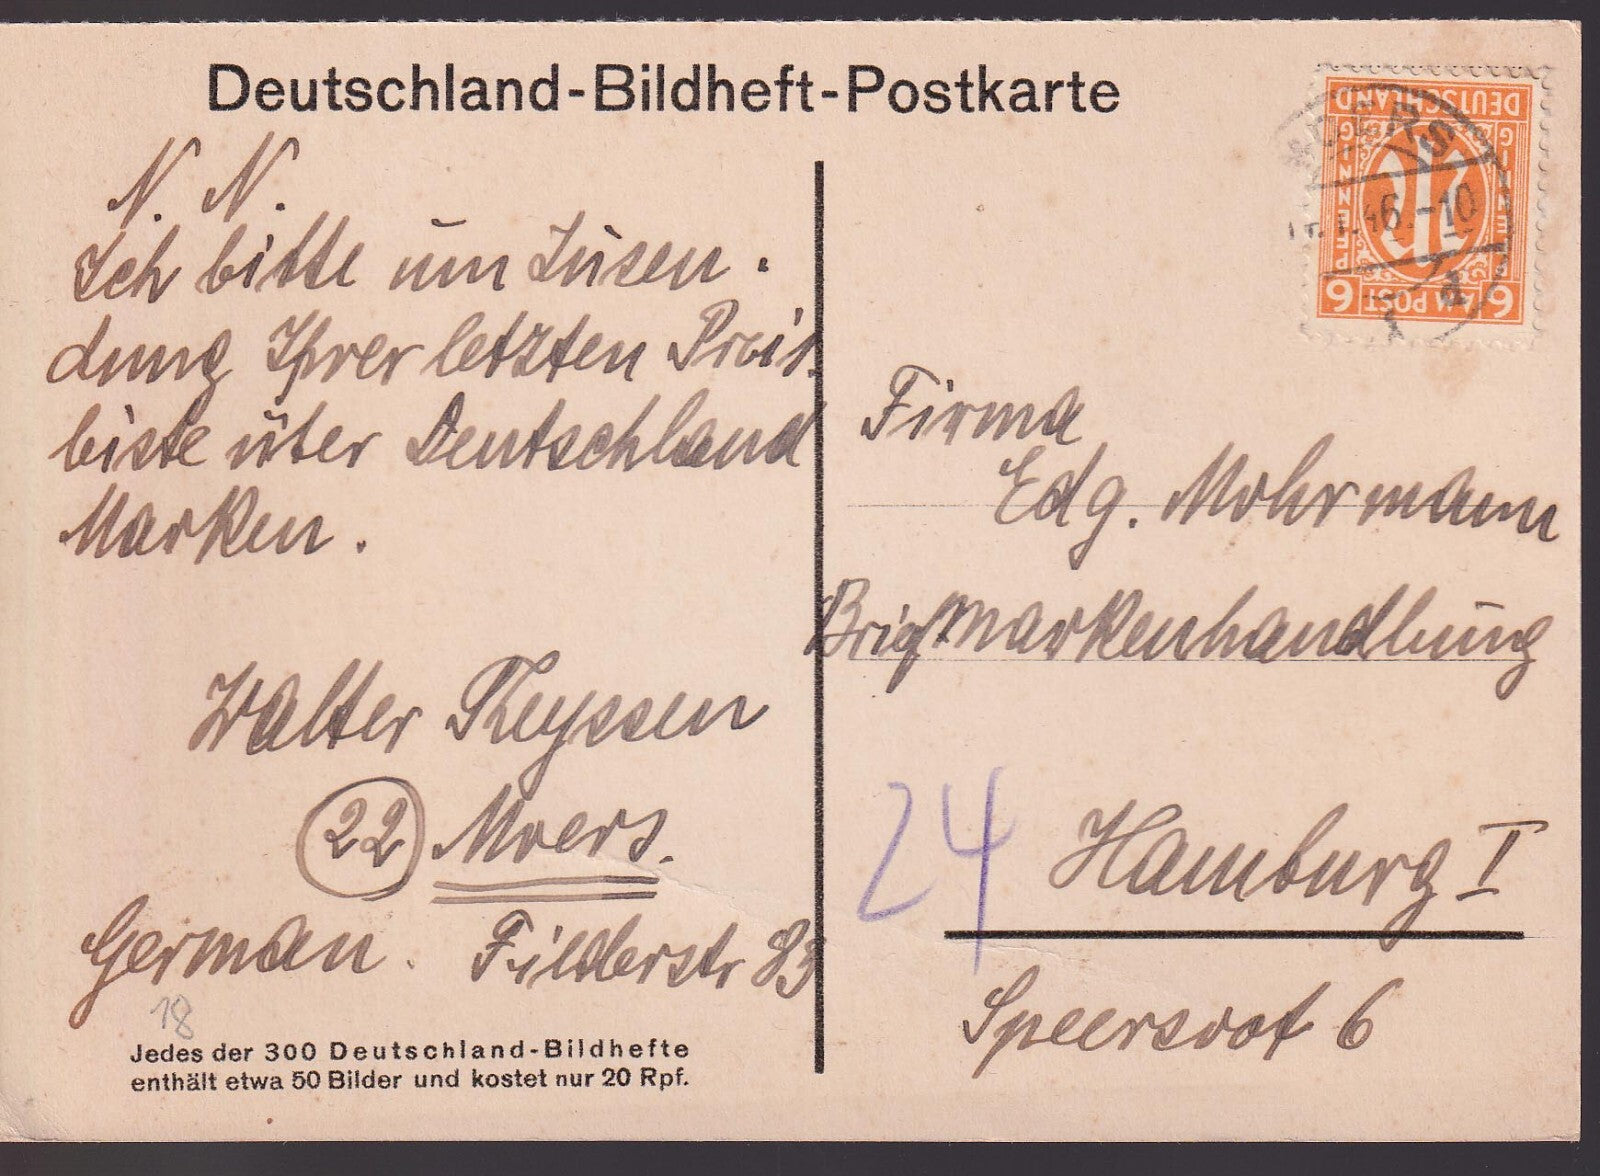 Deutschland-Bildheft-Postkarte
N. N.
Ich bitte um Zusen.
dung Ihrer letzten Preis.
liste über Deutschland
Marken.
Walter Keyssen
22 Moers.
German. Filderstr 83
18
Jedes der 300 Deutschland-Bildhefte
enthält etwa 50 Bilder und kostet nur 20 Rpf.
DEUTSCHLAND
PFENNIG
M
AM POST
6 6
MOERS
46.-10
d
Firma
Edg. Mohrmann
Briefmarkenhandlung
24 Hamburg I
Speersort 6